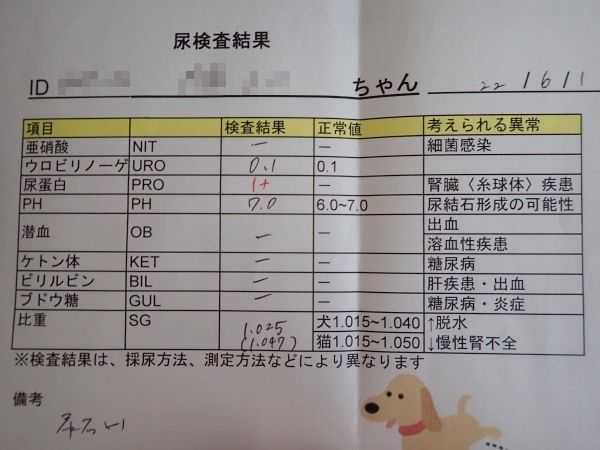 尿検査結果
ID ちゃん 22 / 6 / 1
項目 検査結果 正常値 考えられる異常
亜硝酸 NIT － － 細菌感染
ウロビリノーゲ URO 0.1 0.1
尿蛋白 PRO 1+ － 腎臓〈糸球体〉疾患
PH PH 7.0 6.0~7.0 尿結石形成の可能性
潜血 OB － － 出血
溶血性疾患
ケトン体 KET － － 糖尿病
ビリルビン BIL － － 肝疾患・出血
ブドウ糖 GUL － － 糖尿病・炎症
比重 SG 1.025 犬1.015~1.040 ↑脱水
(1.047) 猫1.015~1.050 ↓慢性腎不全
※検査結果は、採尿方法、測定方法などにより異なります
備考